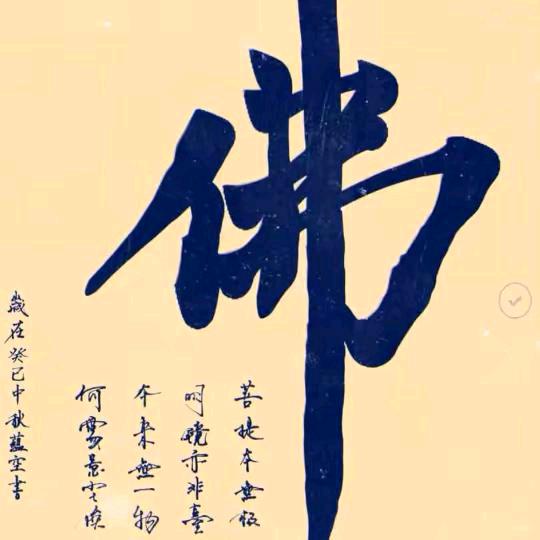 佛
菩提本無樹
明鏡亦非臺
本來無一物
何處惹塵埃
歲在癸巳中秋藍空書